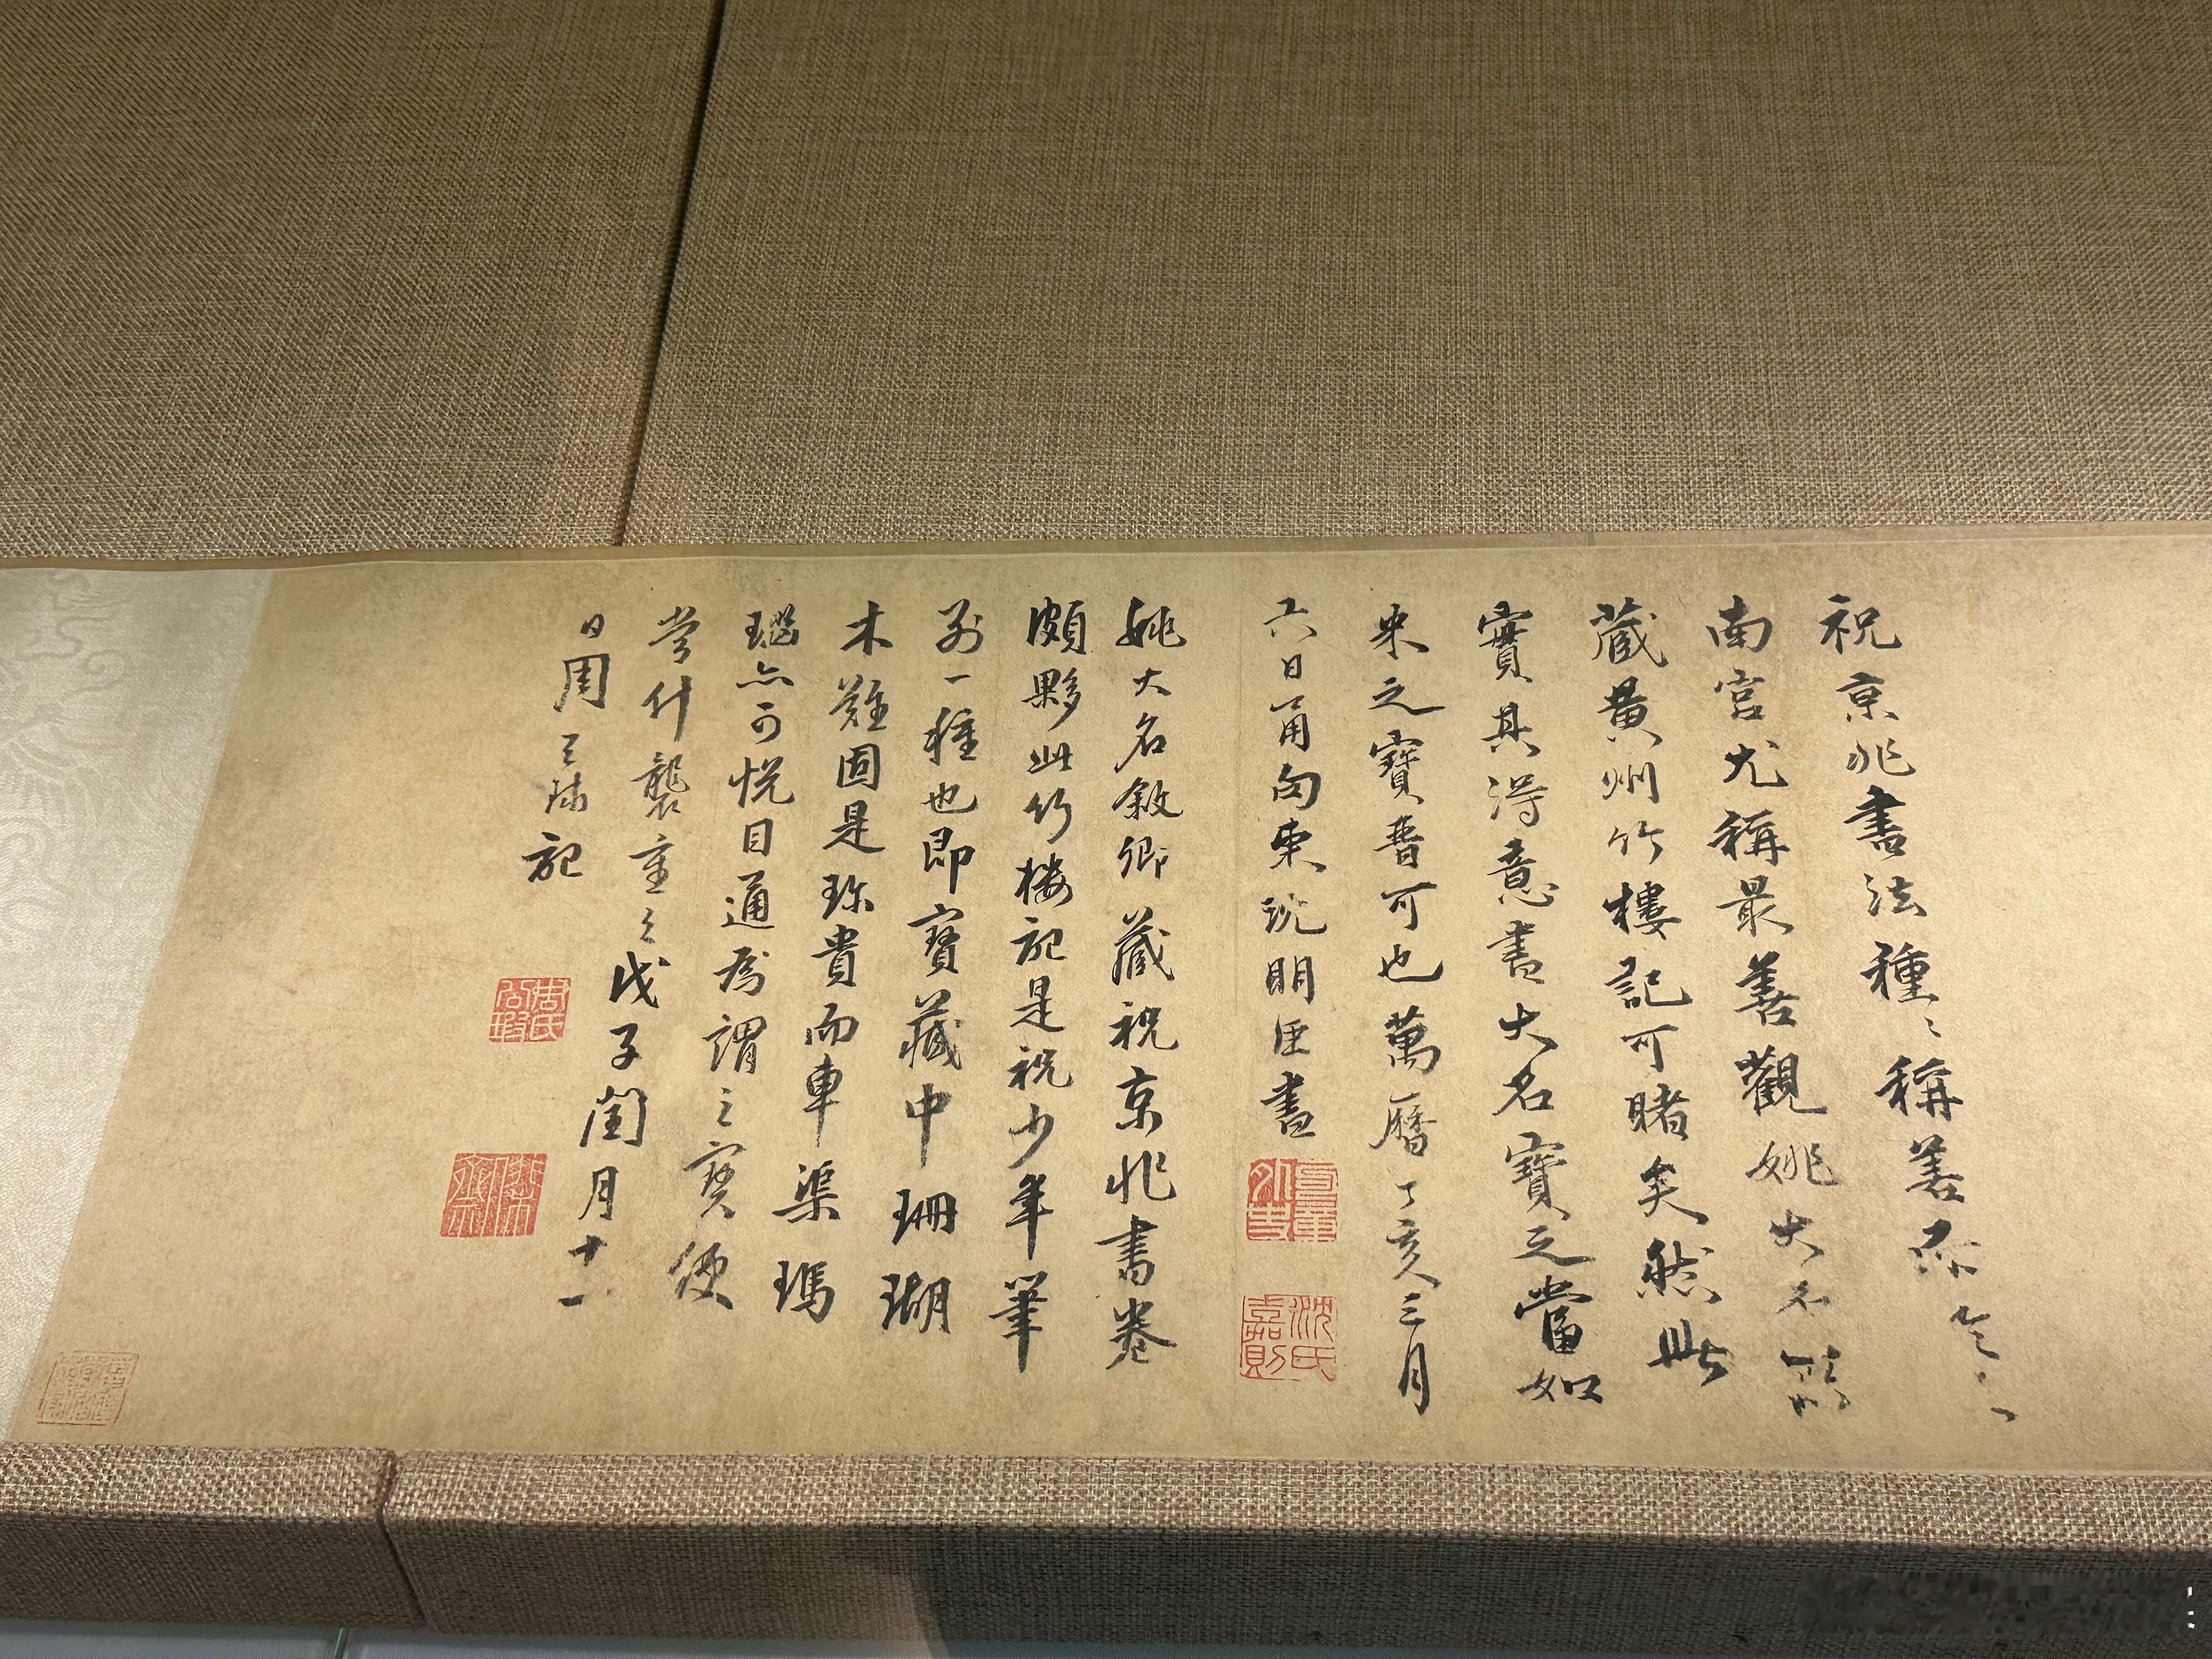 祝京兆書法種〻稱善
南宮尤稱最善觀姚大名
藏黃州竹樓記可睹矣然此
實其得意書大名寶之當如
米之寶晉可也萬曆丁亥三月
六日甬句東沈明臣書
沈氏嘉則
姚大名敘卿藏祝京兆書卷
頗夥此竹樓記是祝少年筆
別一種也即寶藏中珊瑚
木難固是珍貴而車渠瑪
瑙亦可悅目通爲謂之寶便
當什襲重之戊子閏月十一
日周記